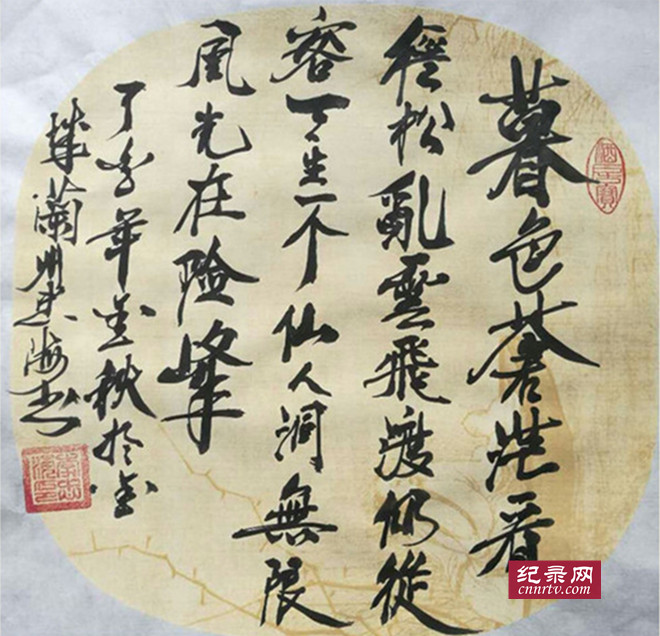 暮色蒼茫看
徑松亂雲飛渡仍從
容天生一个仙人洞無限
風光在险峰
丁酉年金秋於金
城蘭州建海书
纪录网
cnnrtv.com